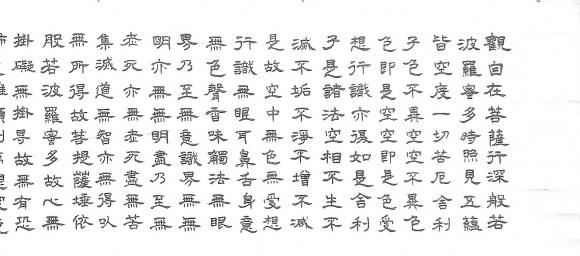 觀自在菩薩行深般若
波羅蜜多時照見五蘊
皆空度一切苦厄舍利
子色不異空空不異色
色即是空空即是色受
想行識亦復如是舍利
子是諸法空相不生不
滅不垢不淨不增不減
是故空中無色無受想
行識無眼耳鼻舌身意
無色聲香味觸法無眼
界乃至無意識界無無
明亦無無明盡乃至無
老死亦無老死盡無苦
集滅道無智亦無得以
無所得故菩提薩埵依
般若波羅蜜多故心無
掛礙無掛㝵故無有恐